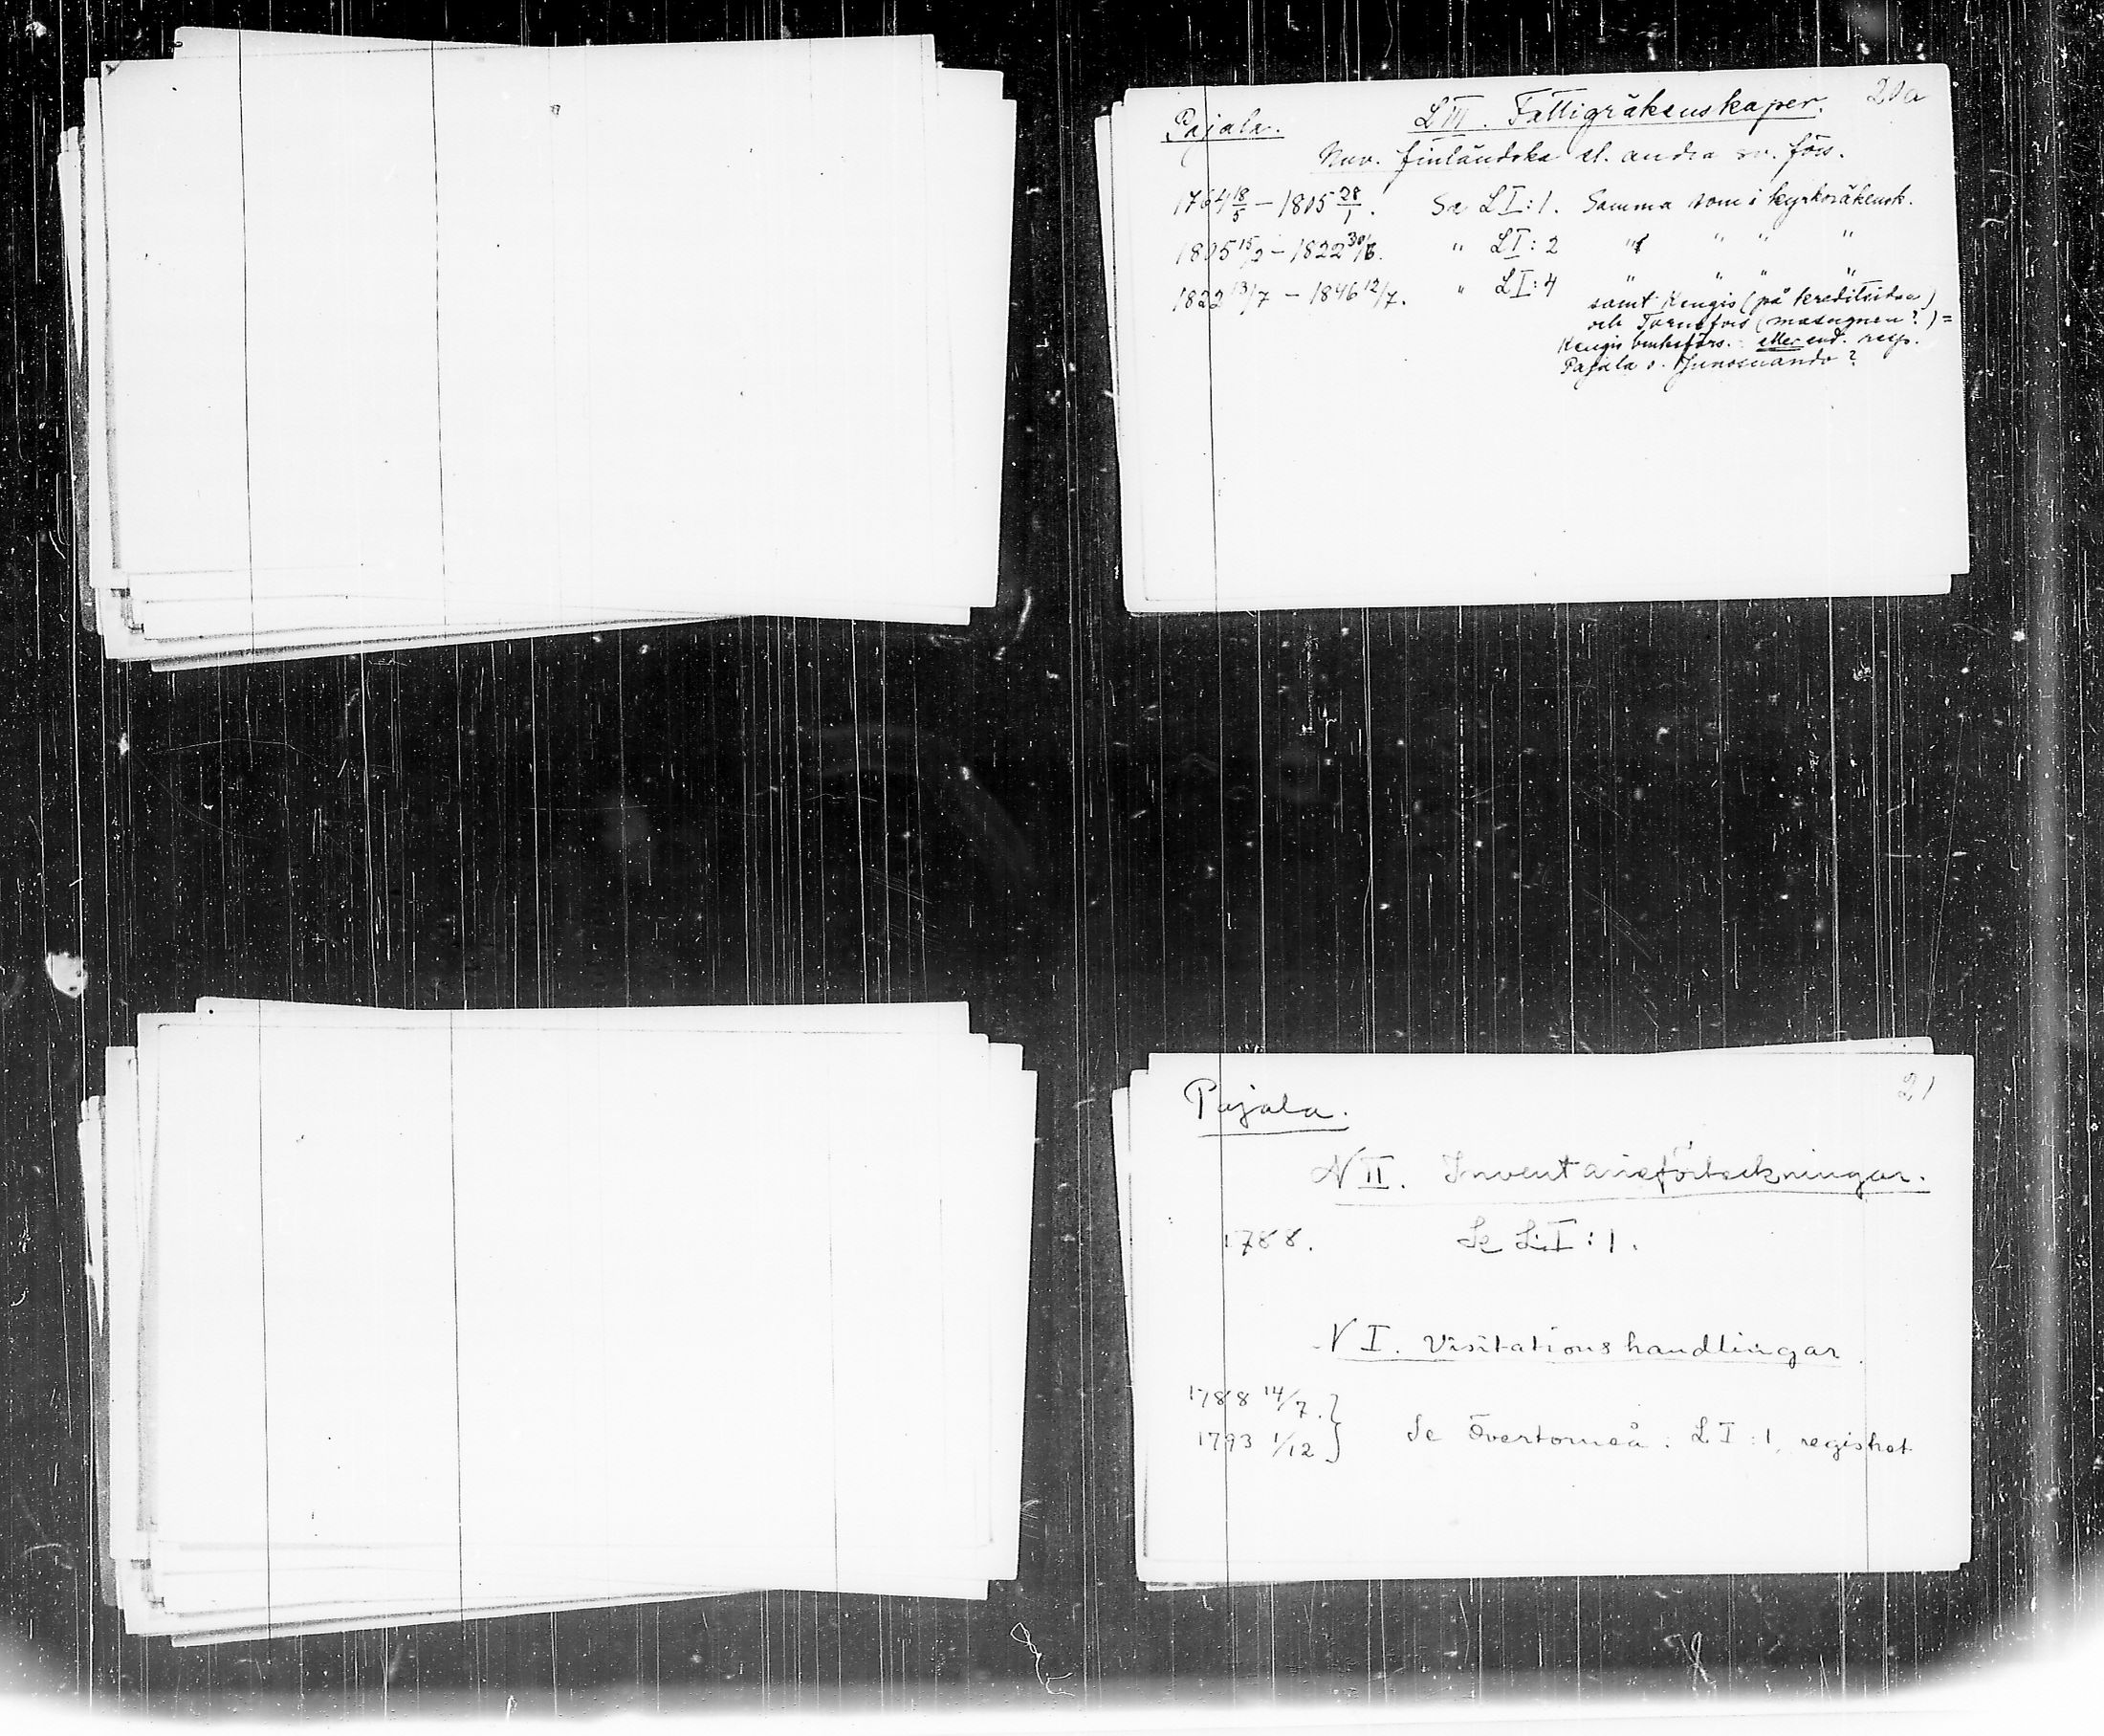 20a
Pajala. L III. Fattigräkenskaper.
Nuv. finländska el. andra sv. förs.
1764 18/5 – 1805 28/1. Se L I: 1. Samma som i kyrkoräkensk.
1805 15/2 – 1822 30/6. " L I: 2 " " " "
1822 13/7 – 1846 12/7. " L I: 4 " " " "
samt Kengis (på kreditsidan)
och Tornefors (masugnen?) =
Kengis bruksförs. eller end. resp.
Pajala o. Junosuando?
21
Pajala.
N II. Inventarieförteckningar.
1788. Se L I: 1.
N I. Visitationshandlingar
1788 14/7. }
1793 1/12 } Se Övertorneå: L I: 1, registret